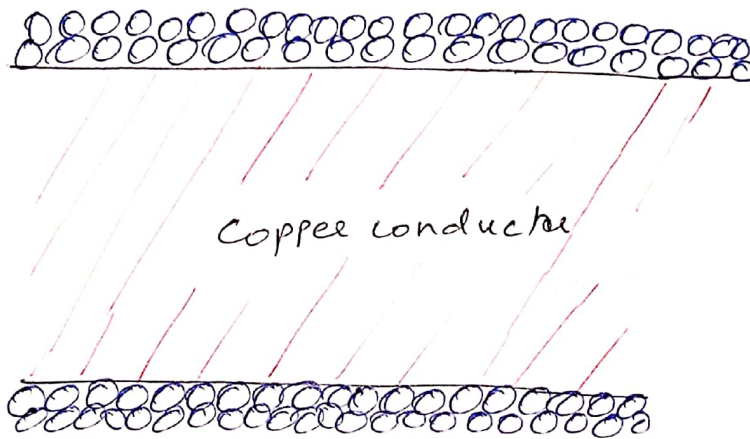 Copper conductor